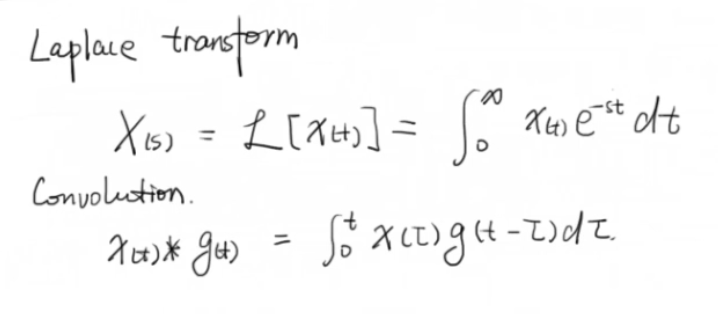 Laplace transform
X(s) = ℒ[x(t)] = ∫₀^∞ x(t) e^{-st} dt
Convolution.
x(t) * g(t) = ∫₀^t x(τ) g(t - τ) dτ.